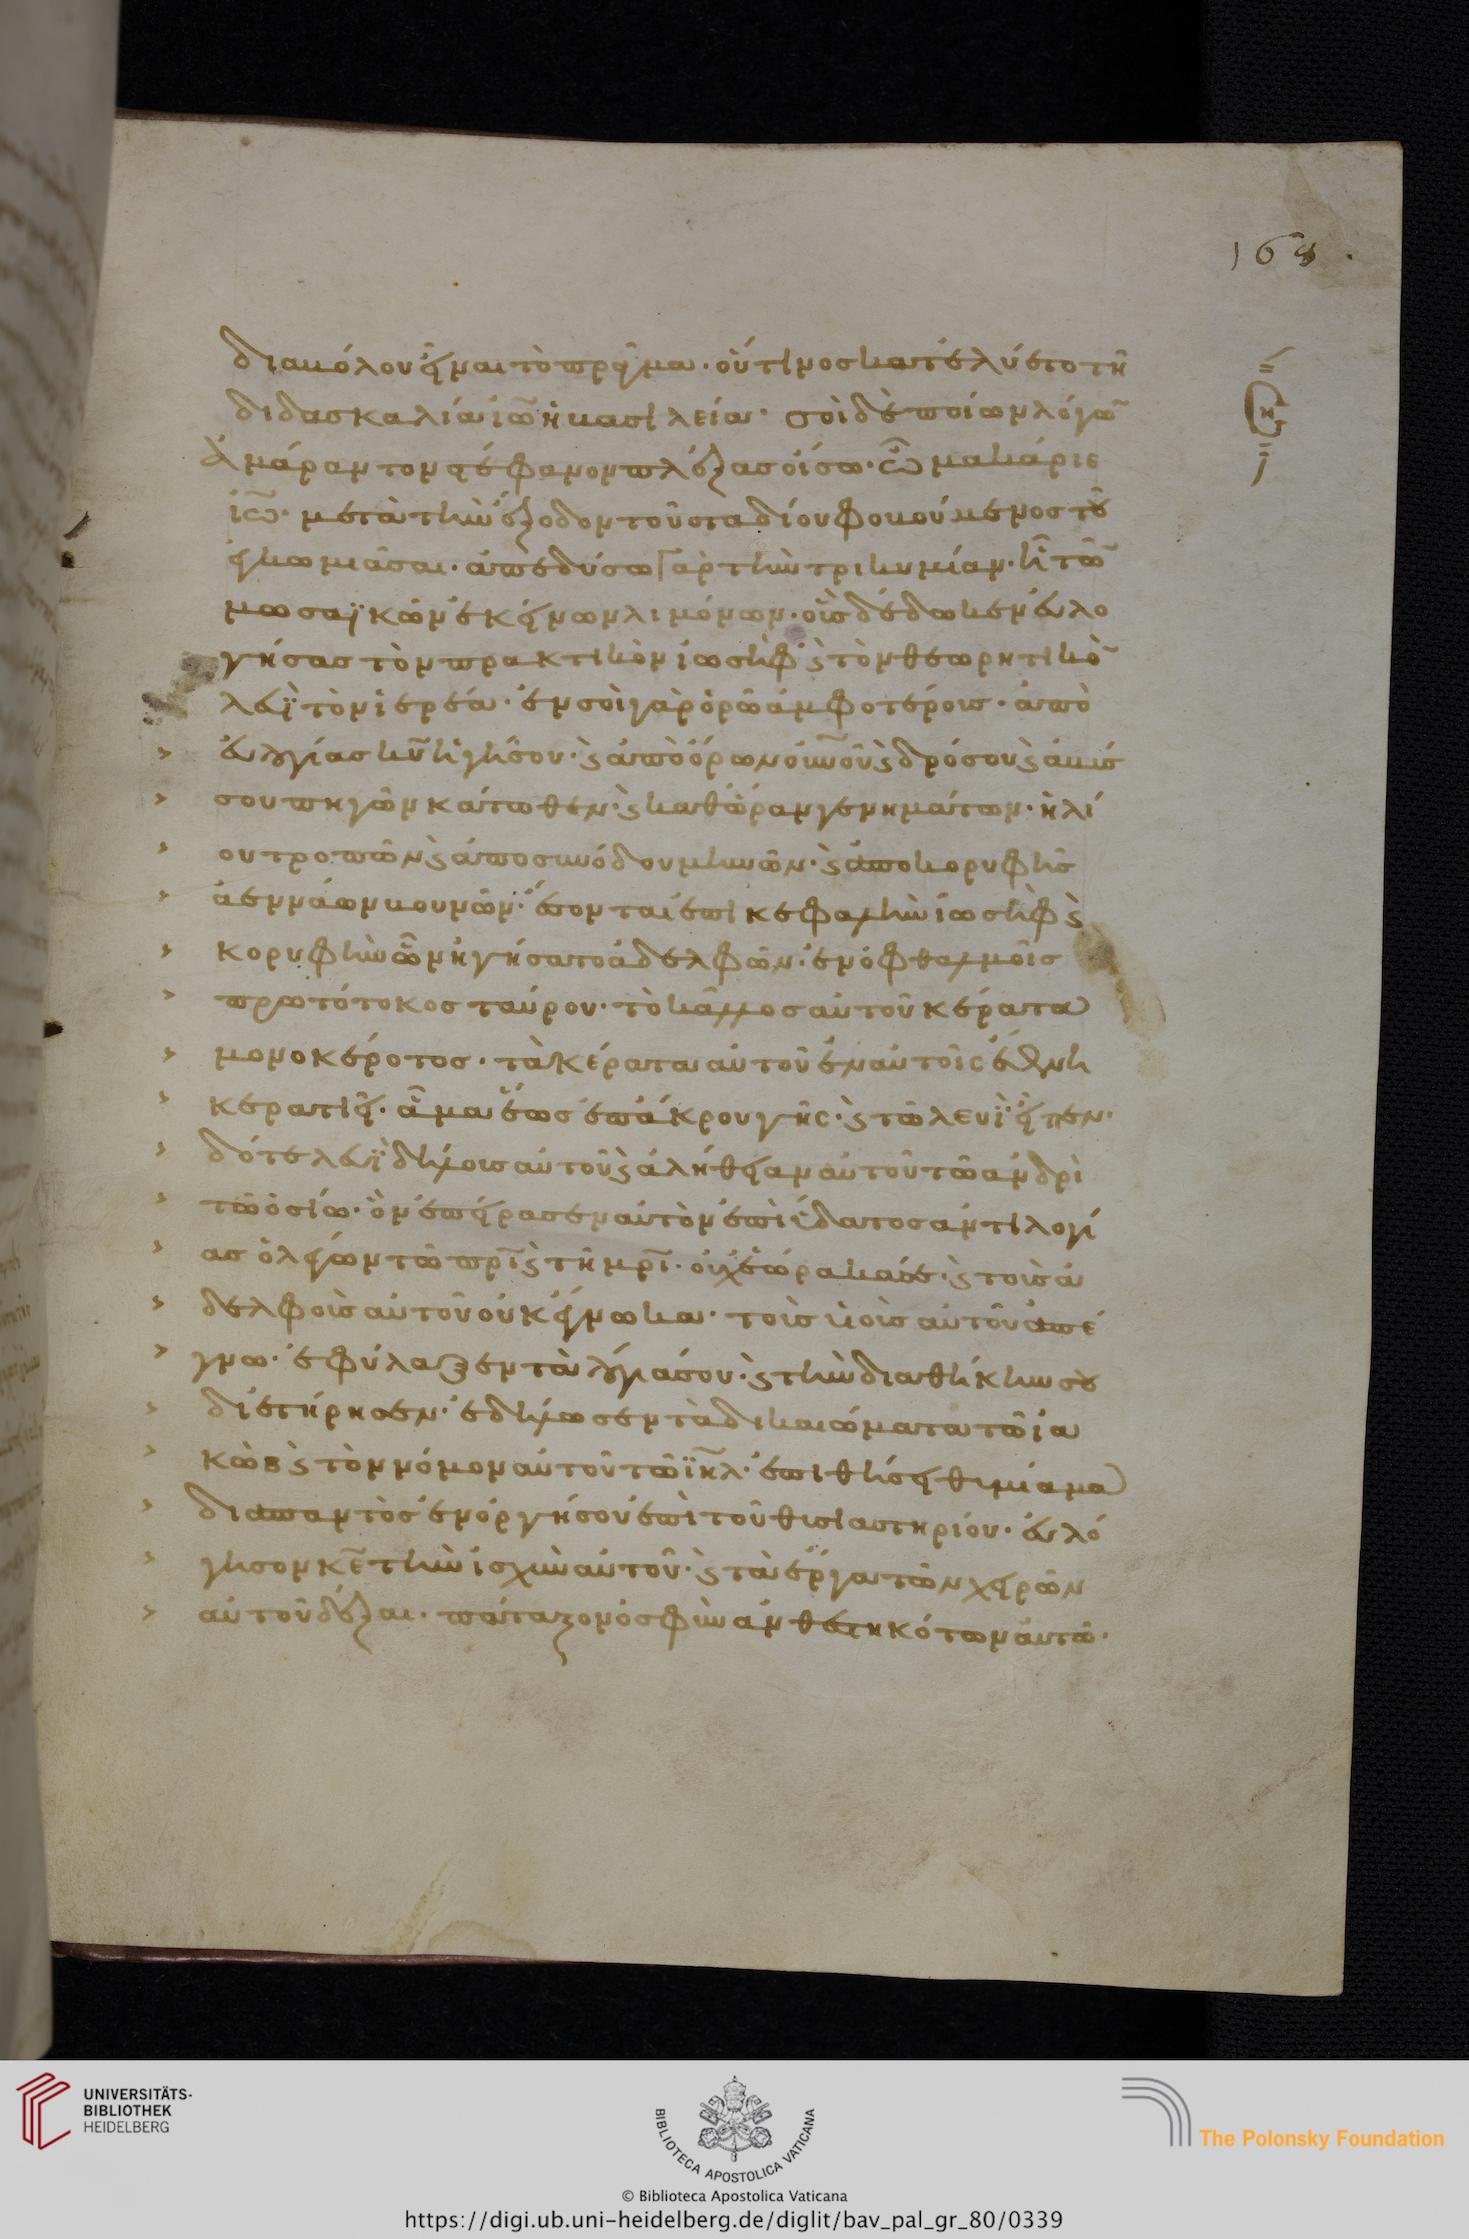 168.
διαβόλου εἶναι τὸ πρᾶγμα· οὕτινος κατελύετο τῆ
διδασκαλία ἰῶ ἡ βασιλεία· σοὶ δὲ ποίων λόγω
Ἀμάραντον στέφανον πλέξας οἴσω· ὦ μακάριε
ἰῶ· μετὰ τὴν ἔξοδον τοῦ σταδίου φοβούμενος τὸ
ἐγκωμιᾶσαι· ἀπεδύσω γὰρ τὴν τρικυμίαν· κ τῶ
μωσαϊκῶν ἐκείνων λιμένων· οἷς δέδωκεν εὐλο
γήσας τὸν πρακτικὸν ἰωσὴφ ς τὸν θεωρητικὸ
λευῒ τὸν ἱερέα· ἐν σοὶ γὰρ ὁρῶ ἀμφοτέροις· ἀπὸ
εὐλογίας κῦ ἡ γῆ σου· ς ἀπὸ ὁρῶν οὐνοῦ ς δρόσου ς ἀβύσ
σου πηγῶν κάτωθεν· ς καθ' ὥραν γενημάτων· ἡλί
ου τροπῶν ς ἀπο συνόδου μηνῶν· ς ἀπο κορυφῆς
ἀεννάων βουνῶν· ἔσονται ἐπὶ κεφαλὴν ἰωσὴφ ς
κορυφὴν ὧν ἡγήσατο ἀδελφῶν· ἐν ὀφθαλμοῖς
πρωτότοκος ταύρου· τὸ κάλλος αὐτοῦ κέρατα
μονοκέροτος· τὰ κέρατα αὐτοῦ ἐν αὐτοῖς ἔθνη
κερατιεῖ· ἅμα ἕως ἐπ' ἄκρου γῆς· ς τῶ λευῒ εἶπεν·
δότε λευῒ δήλοις αὐτοῦ ς ἀλήθειαν αὐτοῦ τῶ ἀνδρὶ
τῶ ὁσίω· ὃν ἐπείρασεν αὐτὸν ἐπὶ ὕδατος ἀντιλογί
ας ὁ λέγων τῶ πρὶ ς τῆ μρὶ· οὐχ' ἑώρακά σε· ς τοῖς ἀ
δελφοῖς αὐτοῦ οὐκ ἔγνωκα· τοῖς ὑοῖς αὐτοῦ ἀπέ
γνω· ἐφύλαξεν τὰ λόγιά σου· ς τὴν διαθήκην σου
διετήρησεν· ἐδήλωσεν τὰ δικαιώματα τῶ ἰα
κὼβ ς τὸν νόμον αὐτοῦ τῶ ἰηλ· ἐπιθήσει θυμίαμα
διαπαντὸς ἐν ὀργῆ σου ἐπὶ τοῦ θυσιαστηρίου· εὐλό
γησον κε τὴν ἰσχὺν αὐτοῦ· ς τὰ ἔργα τῶν χειρῶν
αὐτοῦ δέξαι· πάταξον ὀσφὺν ἀνθεστηκότων αὐτῶ·
UNIVERSITÄTS-
BIBLIOTHEK
HEIDELBERG
BIBLIOTECA APOSTOLICA VATICANA
The Polonsky Foundation
© Biblioteca Apostolica Vaticana
https://digi.ub.uni-heidelberg.de/diglit/bav_pal_gr_80/0339